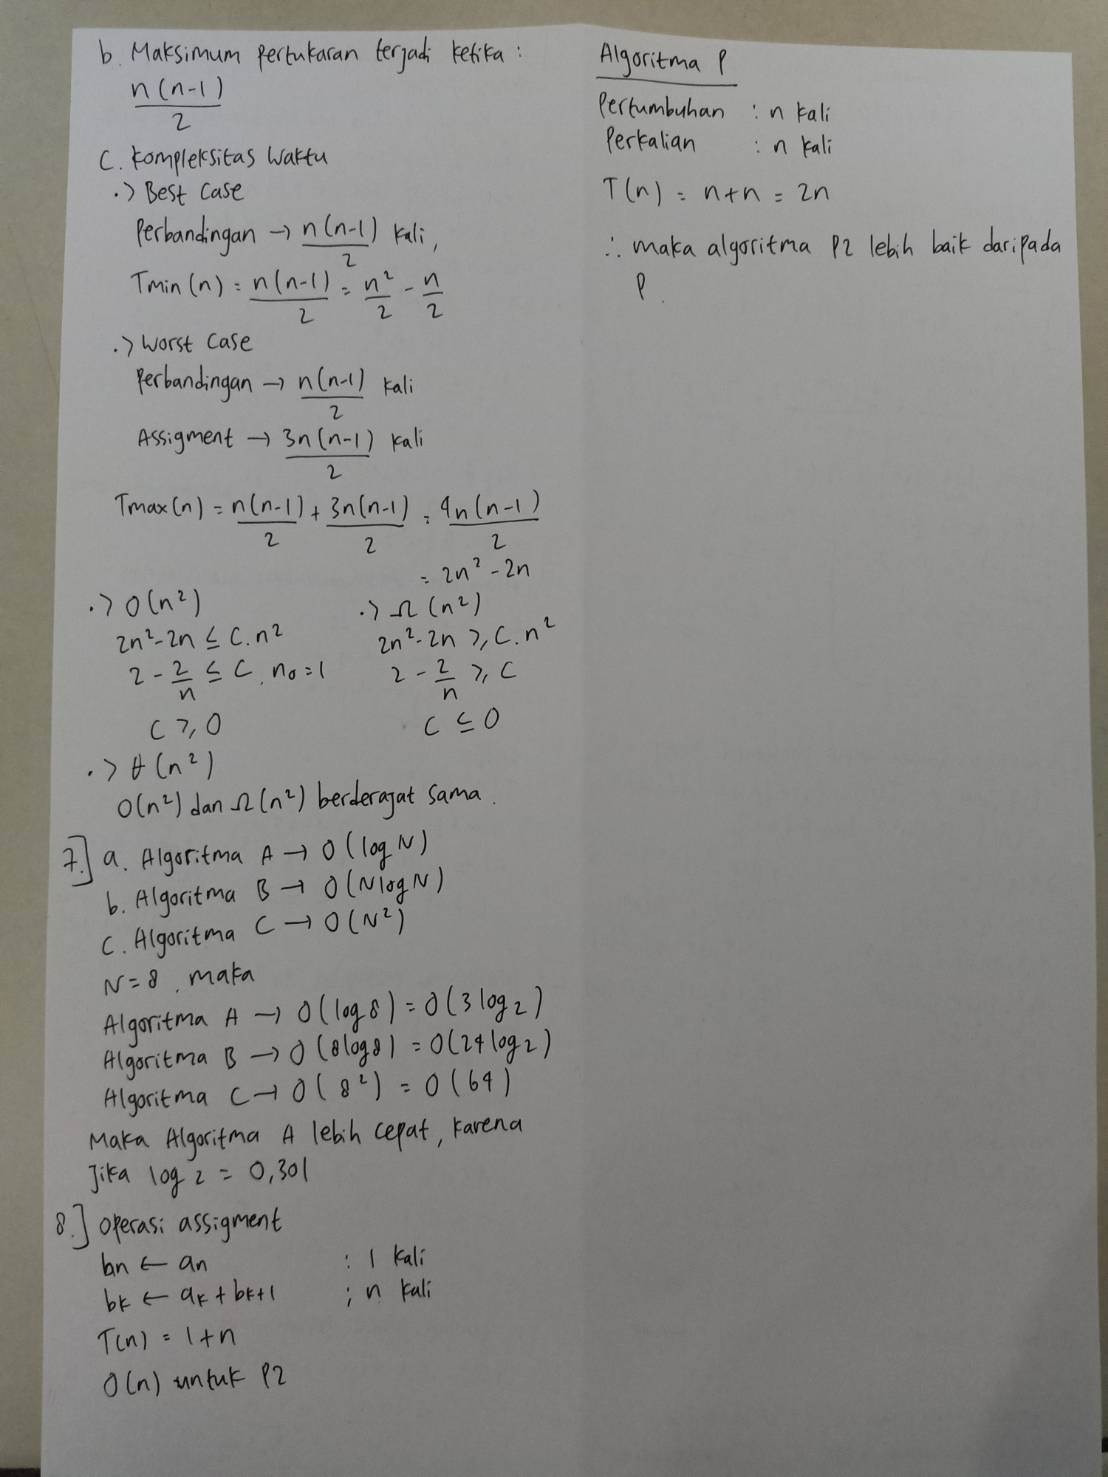 b. Maksimum pertukaran terjadi ketika :
n(n-1)/2
C. Kompleksitas Waktu
·> Best Case
Perbandingan → n(n-1)/2 kali,
Tmin(n) = n(n-1)/2 = n²/2 - n/2
·> Worst Case
Perbandingan → n(n-1)/2 kali
Assigment → 3n(n-1)/2 kali
Tmax(n) = n(n-1)/2 + 3n(n-1)/2 = 4n(n-1)/2
= 2n² - 2n
·> O(n²)
2n² - 2n ≤ C.n²
2 - 2/n ≤ C, n₀ = 1
C ≥ 0
·> Ω(n²)
2n² - 2n ≥ C.n²
2 - 2/n ≥ C
C ≤ 0
·> θ(n²)
O(n²) dan Ω(n²) berderajat sama.
7.] a. Algoritma A → O(log N)
b. Algoritma B → O(N log N)
C. Algoritma C → O(N²)
N = 8, maka
Algoritma A → O(log 8) = O(3 log 2)
Algoritma B → O(8 log 8) = O(24 log 2)
Algoritma C → O(8²) = O(64)
Maka Algoritma A lebih cepat, karena
Jika log 2 = 0,301
8.] Operasi assigment
bn ← an : 1 kali
bk ← ak + bk+1 ; n kali
T(n) = 1+n
O(n) untuk P2
Algoritma P
Pertumbuhan : n kali
Perkalian : n kali
T(n) = n+n = 2n
∴ maka algoritma P2 lebih baik daripada
P.